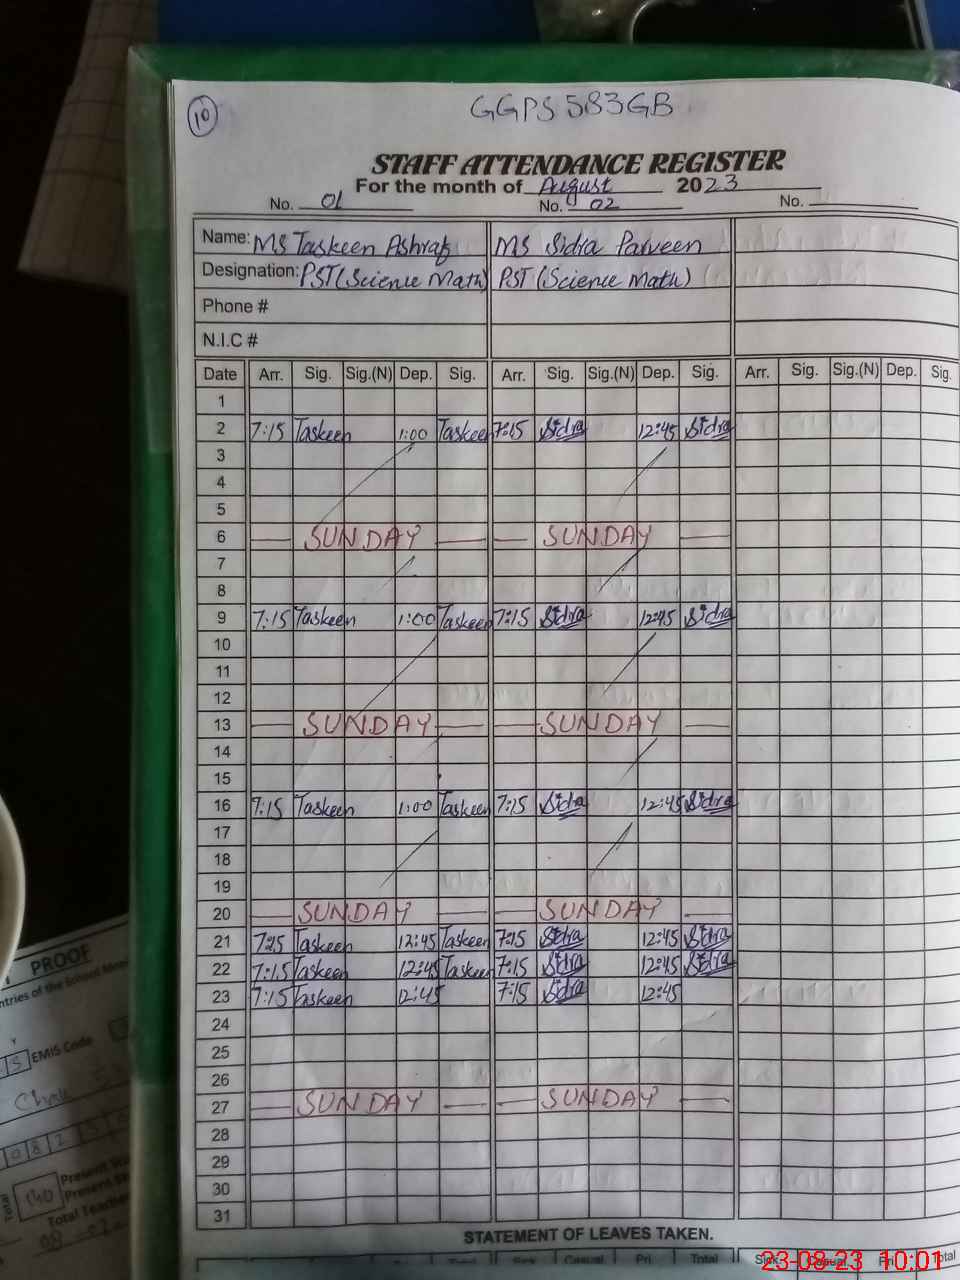 10
GGPS 583GB
STAFF ATTENDANCE REGISTER
For the month of August 2023
No. 01 No. 02 No.
Name: MS Taskeen Ashraf MS Sidra Parveen
Designation: PST (Science Math) PST (Science Math)
Phone #
N.I.C #
Date Arr. Sig. Sig.(N) Dep. Sig. Arr. Sig. Sig.(N) Dep. Sig. Arr. Sig. Sig.(N) Dep. Sig.
1
2 7:15 Taskeen 1:00 Taskeen 7:15 Sidra 12:45 Sidra
3
4
5
6 SUNDAY SUNDAY
7
8
9 7:15 Taskeen 1:00 Taskeen 7:15 Sidra 12:45 Sidra
10
11
12
13 SUNDAY SUNDAY
14
15
16 7:15 Taskeen 1:00 Taskeen 7:15 Sidra 12:45 Sidra
17
18
19
20 SUNDAY SUNDAY
21 7:15 Taskeen 12:45 Taskeen 7:15 Sidra 12:45 Sidra
22 7:15 Taskeen 12:45 Taskeen 7:15 Sidra 12:45 Sidra
23 7:15 Taskeen 12:45 7:15 Sidra 12:45
24
25
26
27 SUNDAY SUNDAY
28
29
30
31
STATEMENT OF LEAVES TAKEN.
Sick Casual Pri. Total Sick Casual Pri. Total
23-08-23 10:01
PROOF
EMIS Code
Chak
Total
Present
Present
Total Teacher